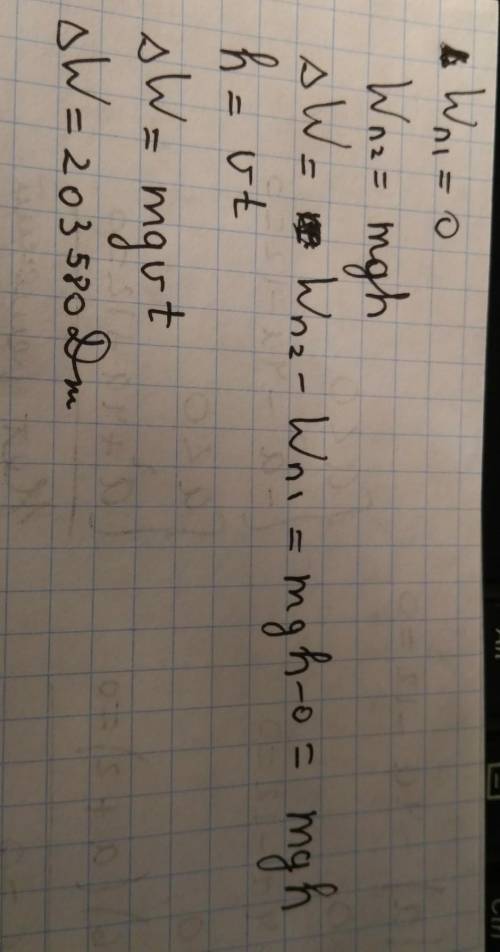 Wп1 = 0
Wп2 = mgh
ΔW = Wп2 - Wп1 = mgh - 0 = mgh
h = vt
ΔW = mgvt
ΔW = 203580 Дж